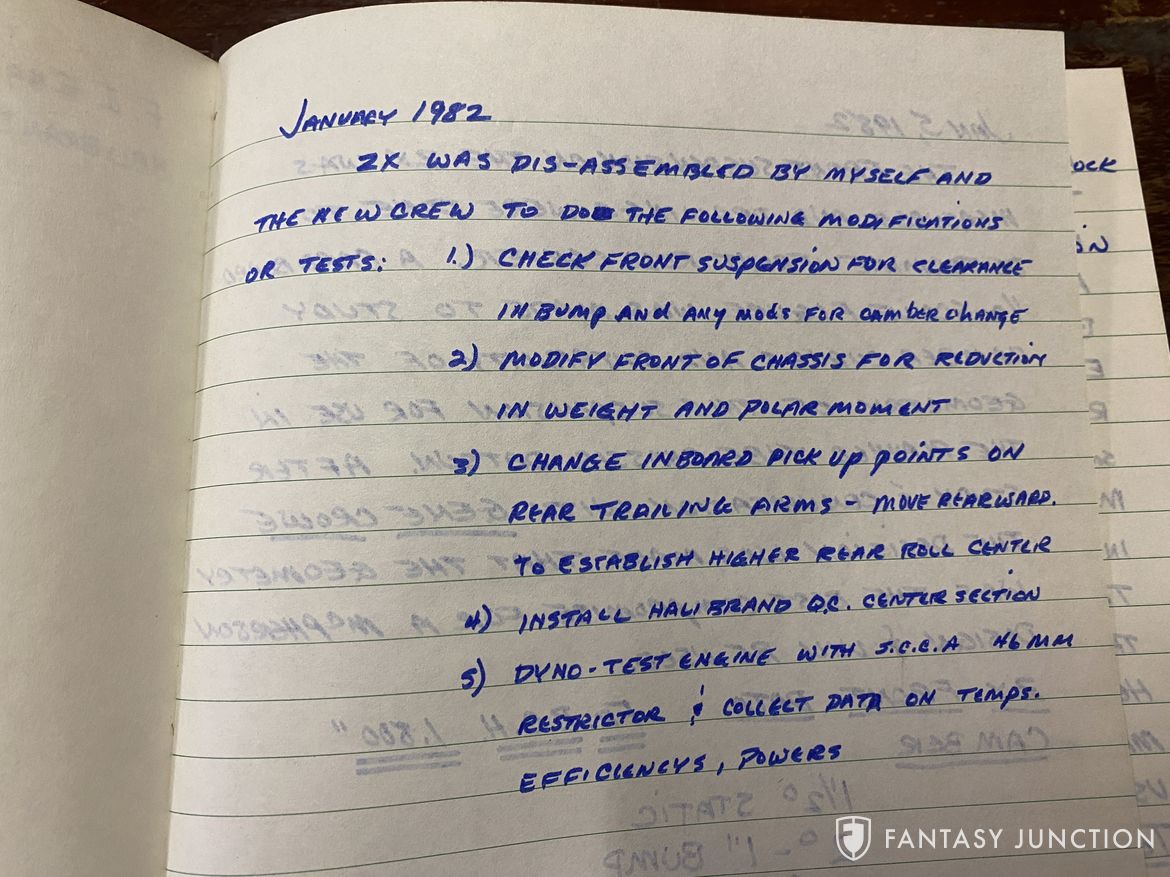 JANUARY 1982
ZX WAS DIS-ASSEMBLED BY MYSELF AND
THE NEW CREW TO DO THE FOLLOWING MODIFICATIONS
OR TESTS: 1.) CHECK FRONT SUSPENSION FOR CLEARANCE
IN BUMP AND ANY MODS FOR CAMBER CHANGE
2) MODIFY FRONT OF CHASSIS FOR REDUCTION
IN WEIGHT AND POLAR MOMENT
3) CHANGE INBOARD PICK UP POINTS ON
REAR TRAILING ARMS - MOVE REARWARD.
TO ESTABLISH HIGHER REAR ROLL CENTER
4) INSTALL HALIBRAND Q.C. CENTER SECTION
5) DYNO-TEST ENGINE WITH S.C.C.A 46MM
RESTRICTOR & COLLECT DATA ON TEMPS.
EFFICIENCYS, POWERS
FANTASY JUNCTION